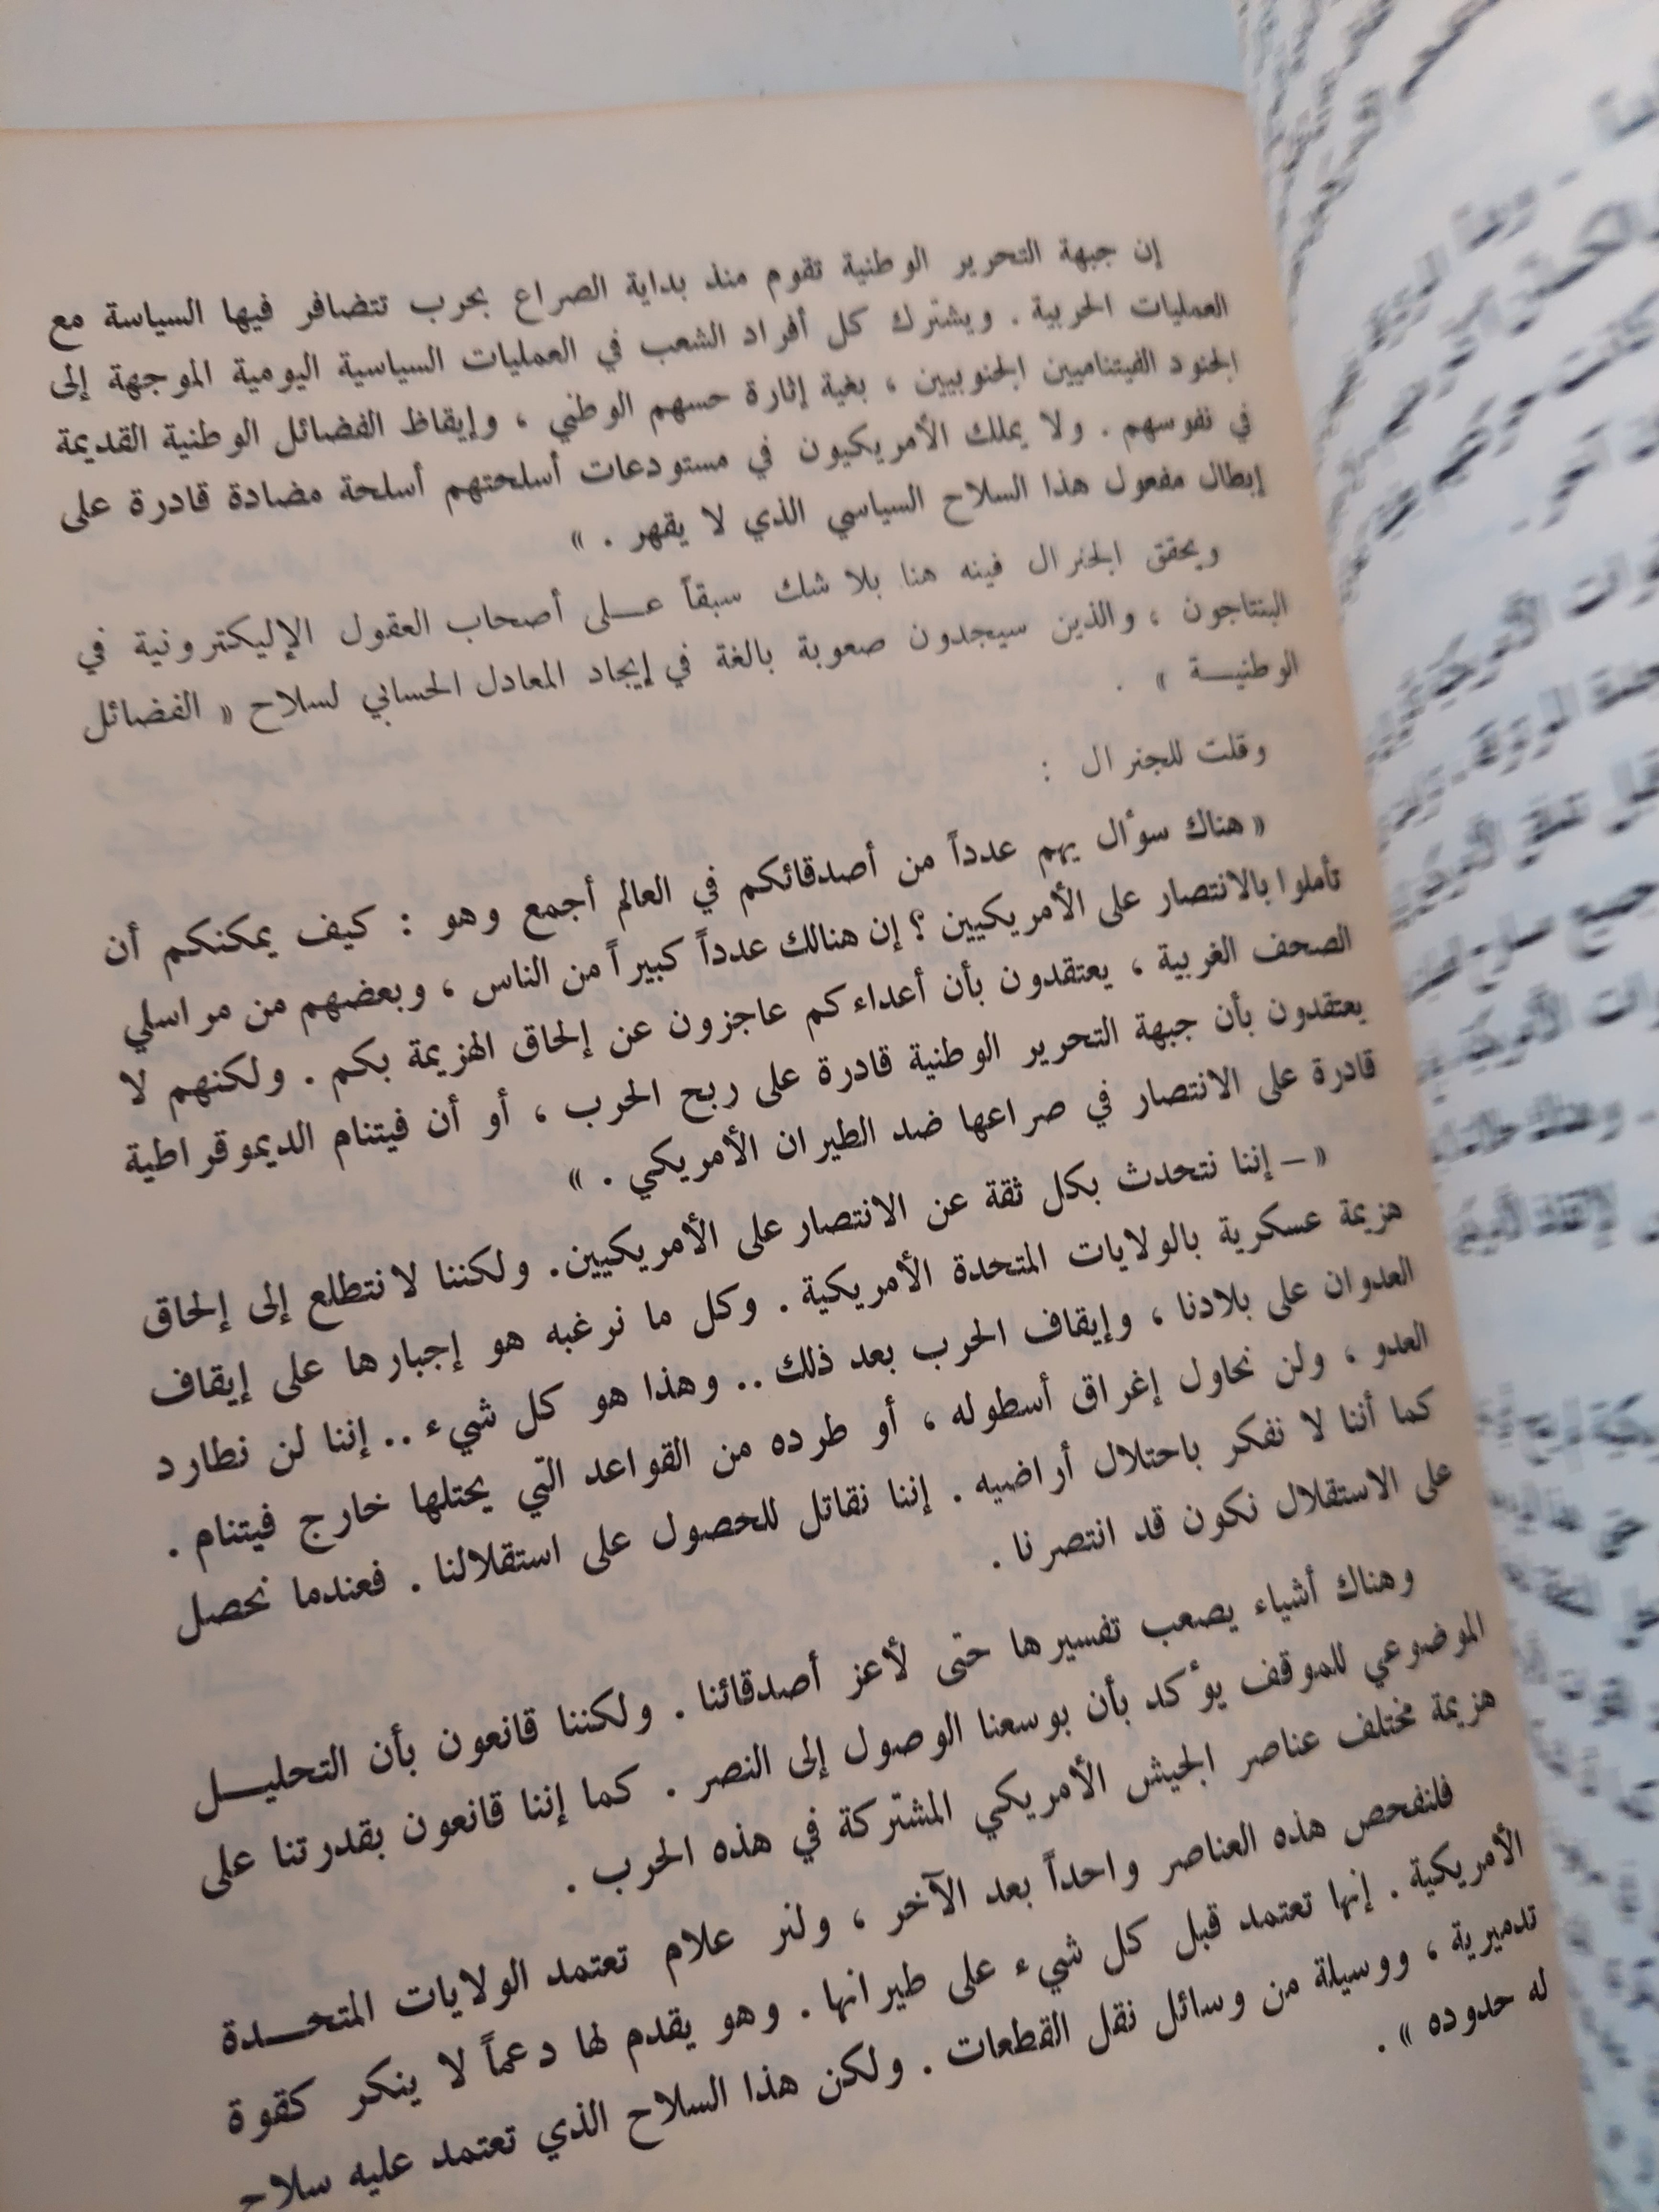 إن جبهة التحرير الوطنية تقوم منذ بداية الصراع بحرب تتضافر فيها السياسة مع
العمليات الحربية . ويشترك كل أفراد الشعب في العمليات السياسية اليومية الموجهة إلى
الجنود الفيتناميين الجنوبيين ، بغية إثارة حسهم الوطني ، وإيقاظ الفضائل الوطنية القديمة
في نفوسهم . ولا يملك الأمريكيون في مستودعات أسلحتهم أسلحة مضادة قادرة على
إبطال مفعول هذا السلاح السياسي الذي لا يقهر . »
ويحقق الجنرال فينه هنا بلا شك سبقاً عــلى أصحاب العقول الإليكترونية في
البنتاجون ، والذين سيجدون صعوبة بالغة في إيجاد المعادل الحسابي لسلاح « الفضائل
الوطنيــة » .
وقلت للجنرال :
« هناك سؤال يهم عدداً من أصدقائكم في العالم أجمع وهو : كيف يمكنكم أن
تأملوا بالانتصار على الأمريكيين ؟ إن هنالك عدداً كبيراً من الناس ، وبعضهم من مراسلي
الصحف الغربية ، يعتقدون بأن أعداءكم عاجزون عن إلحاق الهزيمة بكم . ولكنهم لا
يعتقدون بأن جبهة التحرير الوطنية قادرة على ربح الحرب ، أو أن فيتنام الديموقراطية
قادرة على الانتصار في صراعها ضد الطيران الأمريكي . »
« – إننا نتحدث بكل ثقة عن الانتصار على الأمريكيين. ولكننا لا نتطلع إلى إلحاق
هزيمة عسكرية بالولايات المتحدة الأمريكية . وكل ما نرغبه هو إجبارها على إيقاف
العدوان على بلادنا ، وإيقاف الحرب بعد ذلك .. وهذا هو كل شيء .. إننا لن نطارد
العدو ، ولن نحاول إغراق أسطوله ، أو طرده من القواعد التي يحتلها خارج فيتنام .
كما أننا لا نفكر باحتلال أراضيه . إننا نقاتل للحصول على استقلالنا . فعندما نحصل
على الاستقلال نكون قد انتصرنا .
وهناك أشياء يصعب تفسيرها حتى لأعز أصدقائنا . ولكننا قانعون بأن التحليــل
الموضوعي للموقف يؤكد بأن بوسعنا الوصول إلى النصر . كما إننا قانعون بقدرتنا على
هزيمة مختلف عناصر الجيش الأمريكي المشتركة في هذه الحرب .
فلنفحص هذه العناصر واحداً بعد الآخر ، ولنر علام تعتمد الولايات المتحــدة
الأمريكية . إنها تعتمد قبل كل شيء على طيرانها . وهو يقدم لها دعماً لا ينكر كقوة
تدميرية ، ووسيلة من وسائل نقل القطعات . ولكن هذا السلاح الذي تعتمد عليه سلاح
له حدوده » .